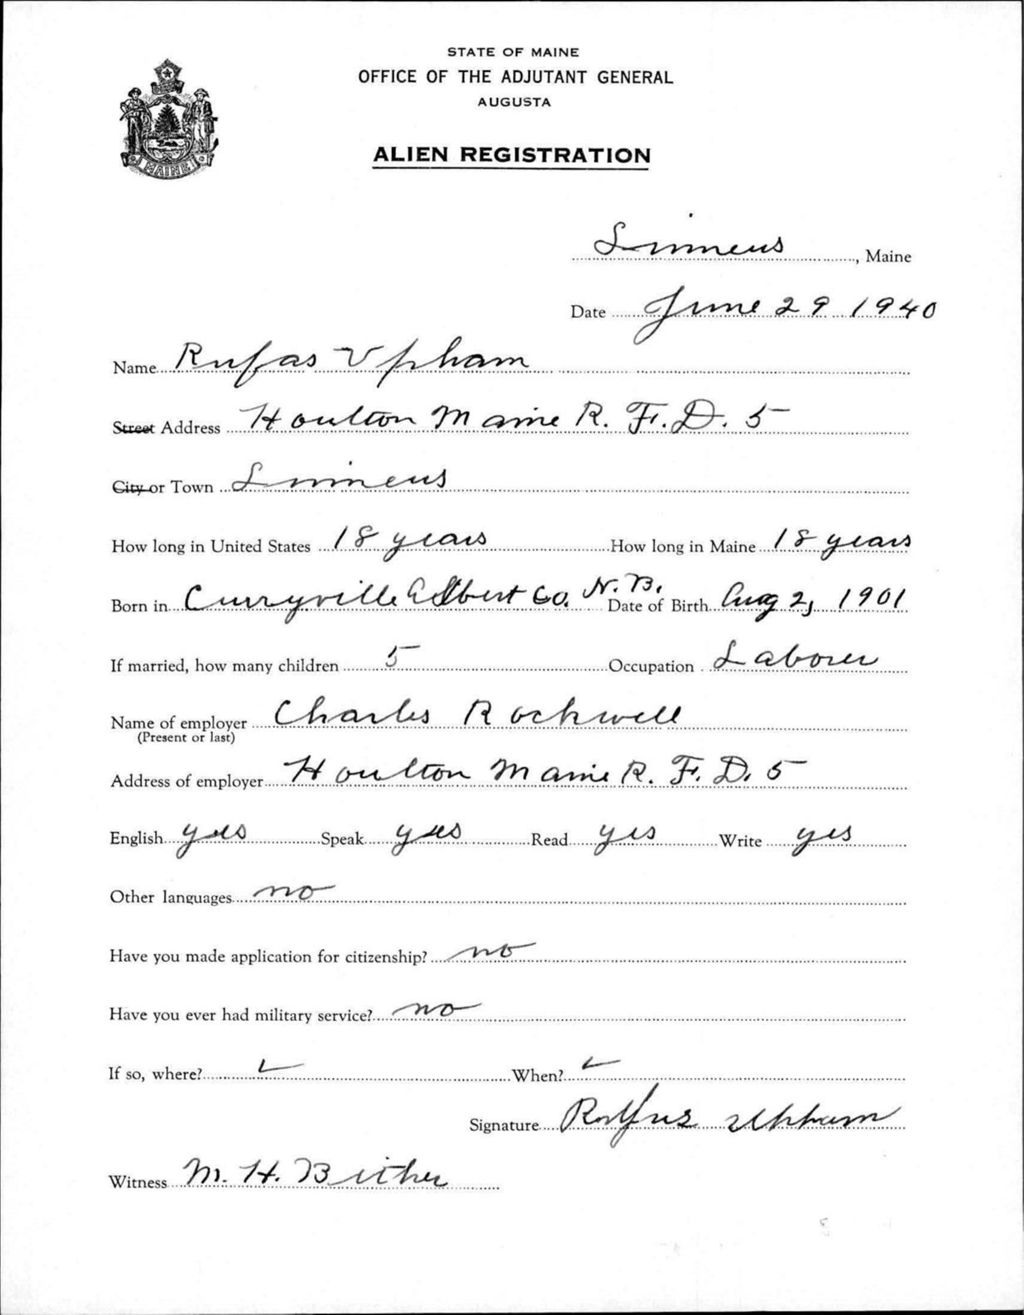 STATE OF MAINE
OFFICE OF THE ADJUTANT GENERAL
AUGUSTA
ALIEN REGISTRATION
MAINE
Linneus, Maine
Date June 29 1940
Name Rufas Upham
Street Address Houlton Maine R. F. D. 5
City or Town Linneus
How long in United States 18 years How long in Maine 18 years
Born in Curryville Albert Co. N. B. Date of Birth Aug 2, 1901
If married, how many children 5 Occupation Laborer
Name of employer Charles Rockwell
(Present or last)
Address of employer Houlton Maine R. F. D. 5
English yes Speak yes Read yes Write yes
Other languages no
Have you made application for citizenship? no
Have you ever had military service? no
If so, where? When?
Signature Rufus Upham
Witness M. H. Bither